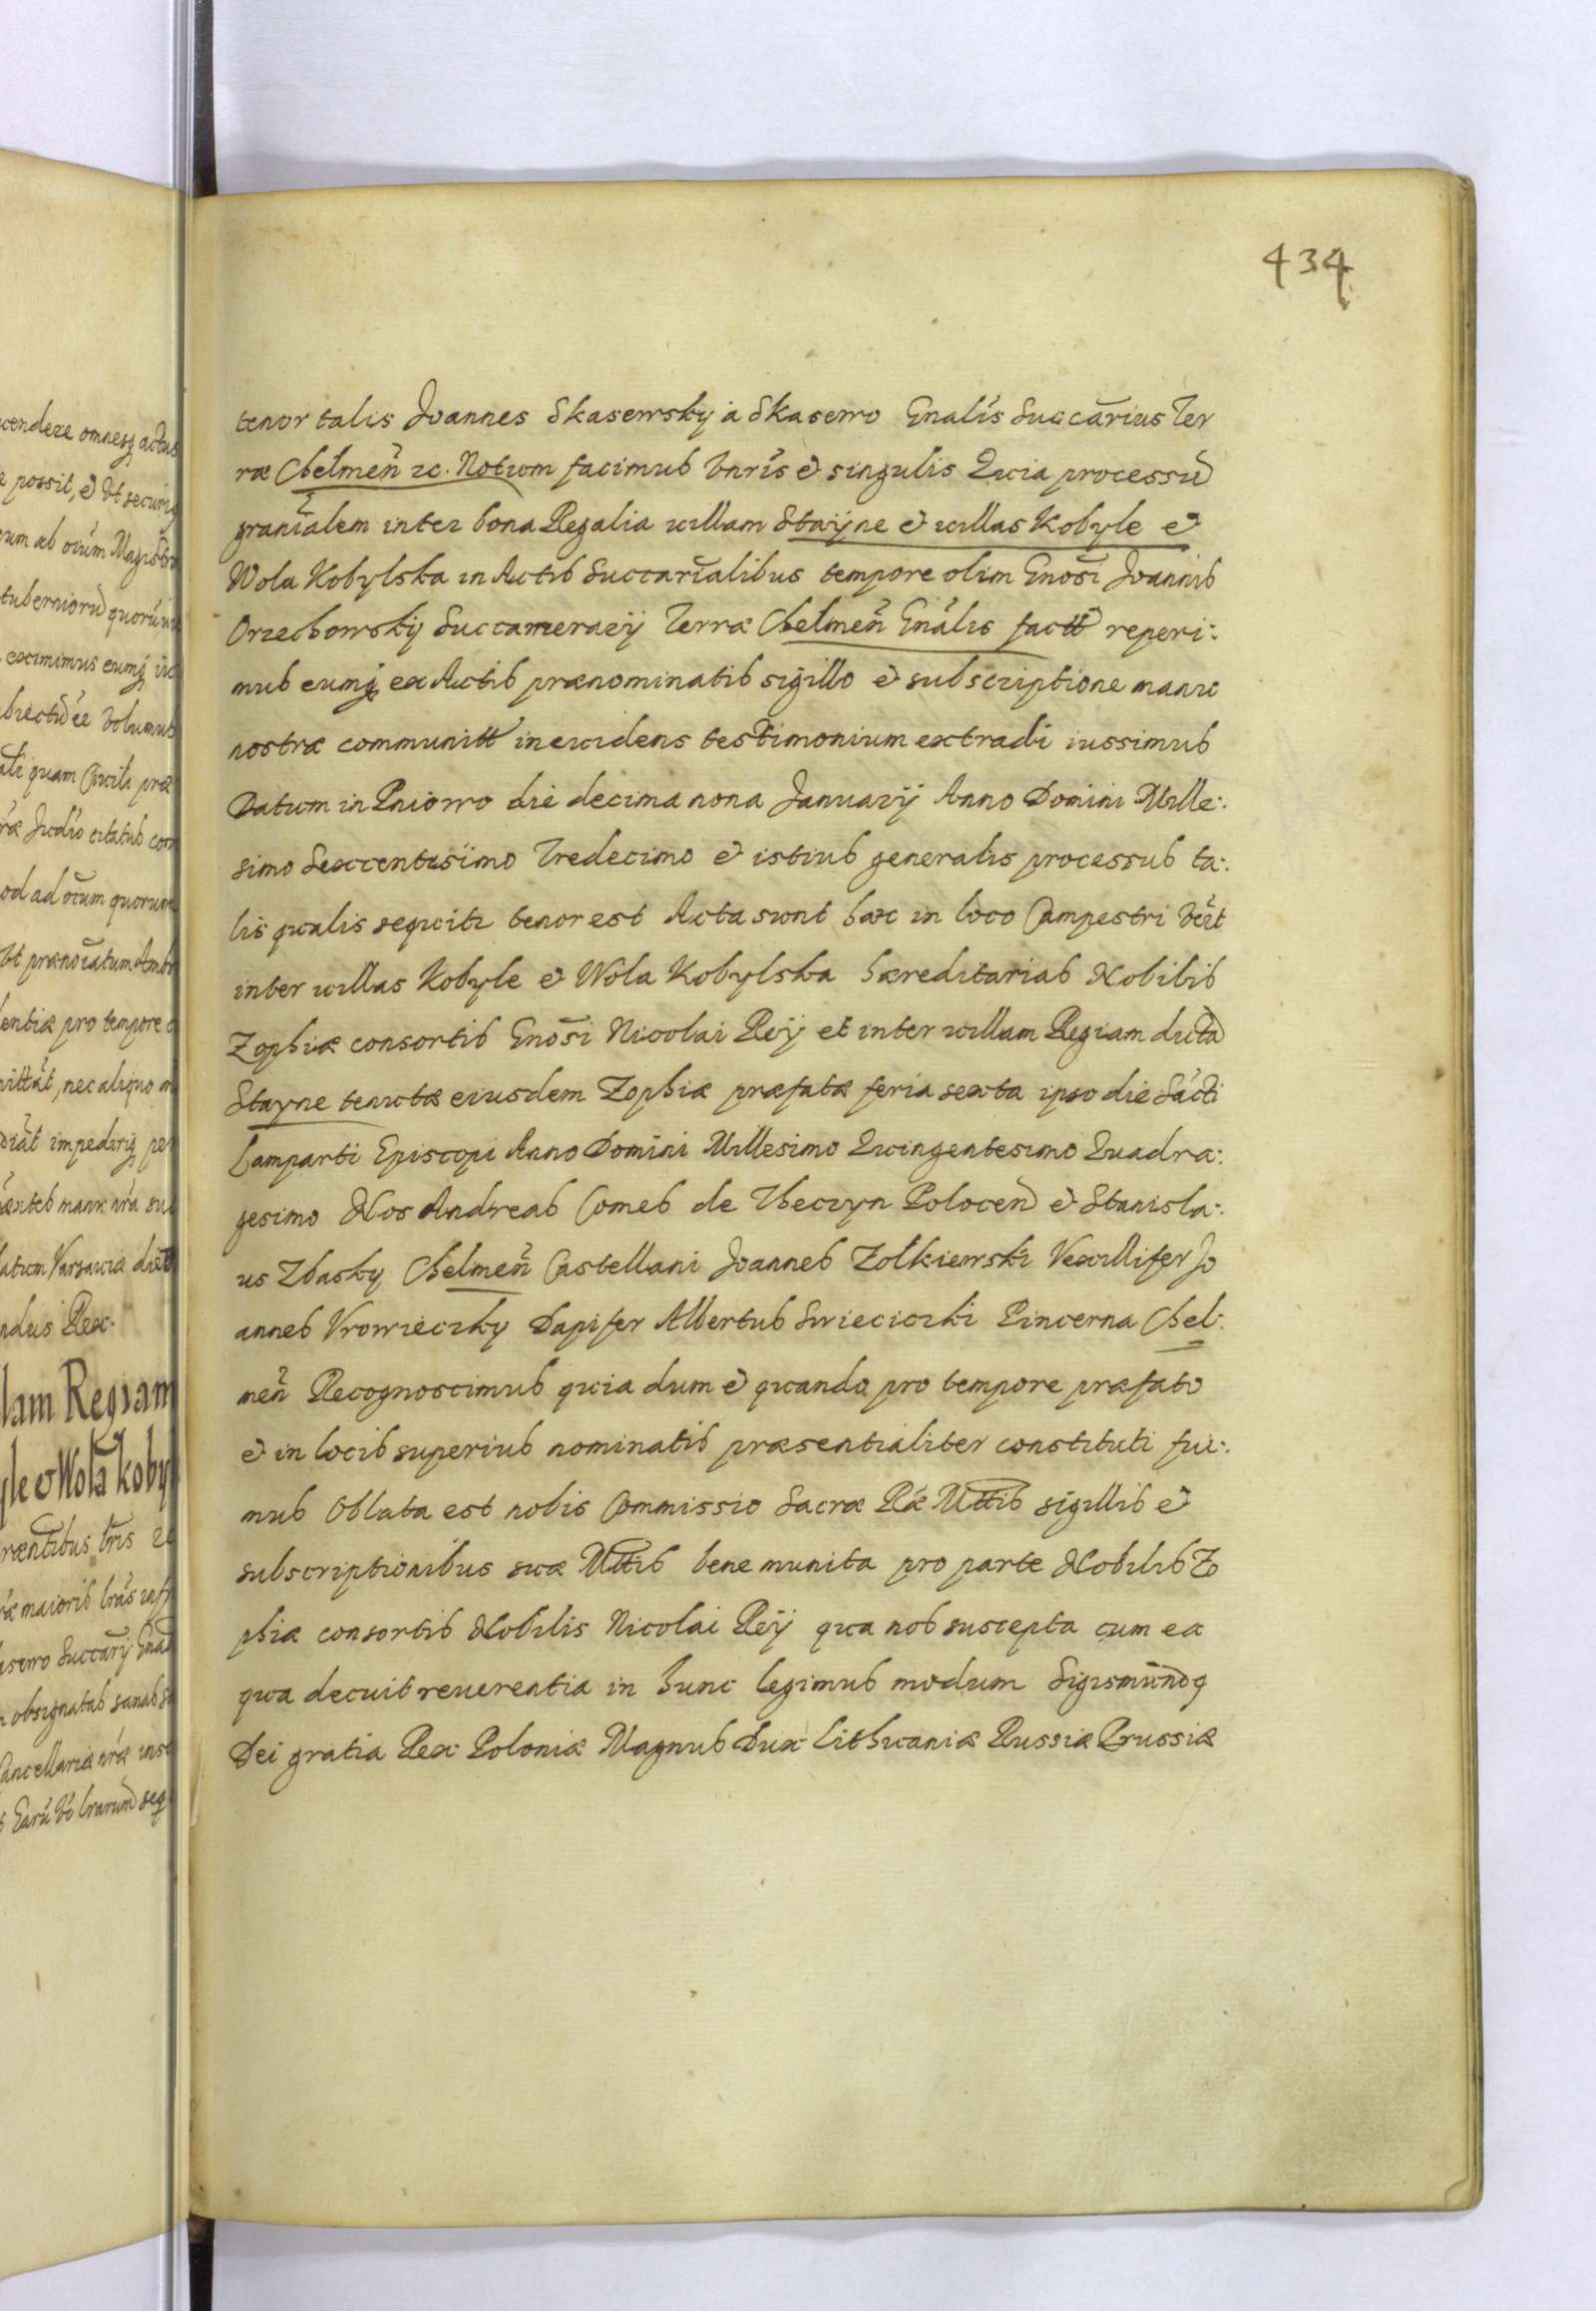 434
tenor talis Joannes Skasewsky a Skasewo Gnalis Succarius Ter
ræ Chelmeñ zc. Notum facimus Vnris et singulis Quia processũ
granicialem inter bona Regalia uillam Stayne et uillas Kobyle et
Wola Kobylska in Actis Succarialibus tempore olim Gnosi Joannis
Orzechowsky Succameraÿ Terræ Chelmeñ Gnãlis factũ reperi:
mus eumq ex Actis prænominatis sigillo et subscriptione manu
nostræ communitũ in euidens testimonium extradi iussimus
Datum in Pniowo die decima nona Januarÿ Anno Domini Mille:
simo Sexcentesimo Tredecimo et istius generalis processus ta:
lis qualis sequitr tenor est Acta sunt hæc in loco Campestri videlt
inter uillas Kobyle et Wola Kobylska hæreditarias Nobilis
Zophiæ consortis Gnosi Nicolai Reÿ et inter uillam Regiam dictã
Stayne tenutæ eiusdem Zophiæ præfatæ feria sexta ipso die Sãcti
Lamparti Episcopi Anno Domini Millesimo Quingentesimo Quadra:
gesimo Nos Andreas Comes de Theczyn Poloceñ et Stanisla:
us Zbasky Chelmeñ Castellani Joannes Zolkiewski Vexillifer Jo
annes Vrowieczky Dapifer Albertus Swieciczki Pincerna Chel:
meñ Recognoscimus quia dum et quando pro tempore præfato
et in locis superius nominatis præsentialiter constituti fui:
mus Oblata est nobis Commissio Sacræ Ræ Mttis sigillis et
subscriptionibus suæ Mttis bene munita pro parte Nobilis Zo
phiæ consortis Nobilis Nicolai Reÿ qua nos suscepta cum ea
qua decuit reuerentia in hunc legimus modum Sigismundq
Dei gratia Rex Poloniæ Magnus Dux Lithuaniæ Russiæ Prussiæ